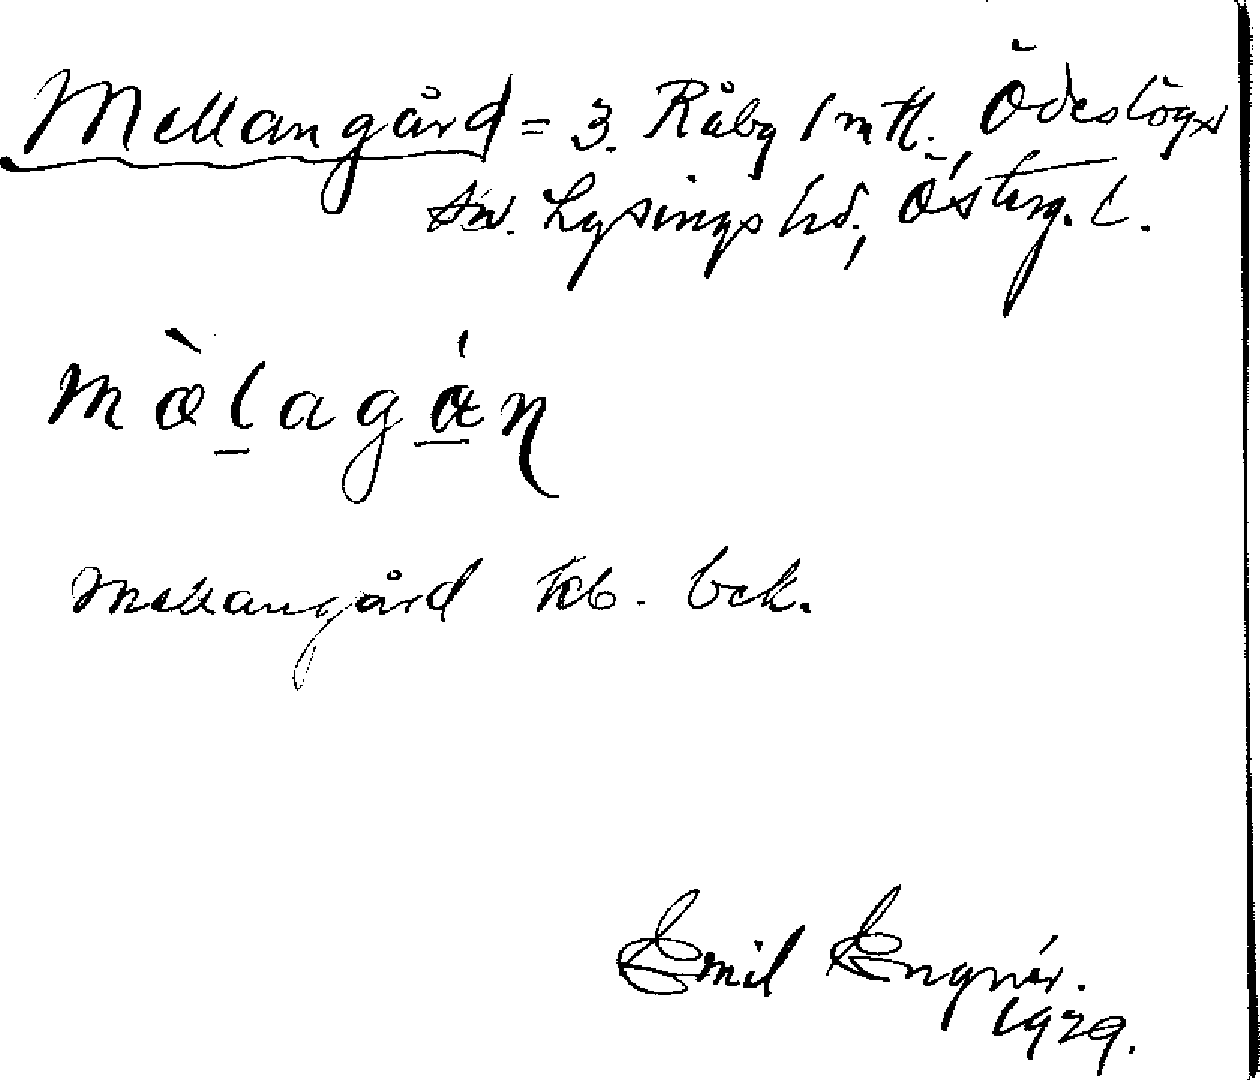 Mellangård = 3. Råby 1 mtl. Ödeshögs
sn. Lysings hd, Österg. l.
mæ̀l̲agá̲ɳ
Mellangård kb. bek.
Emil Engnér.
1929.